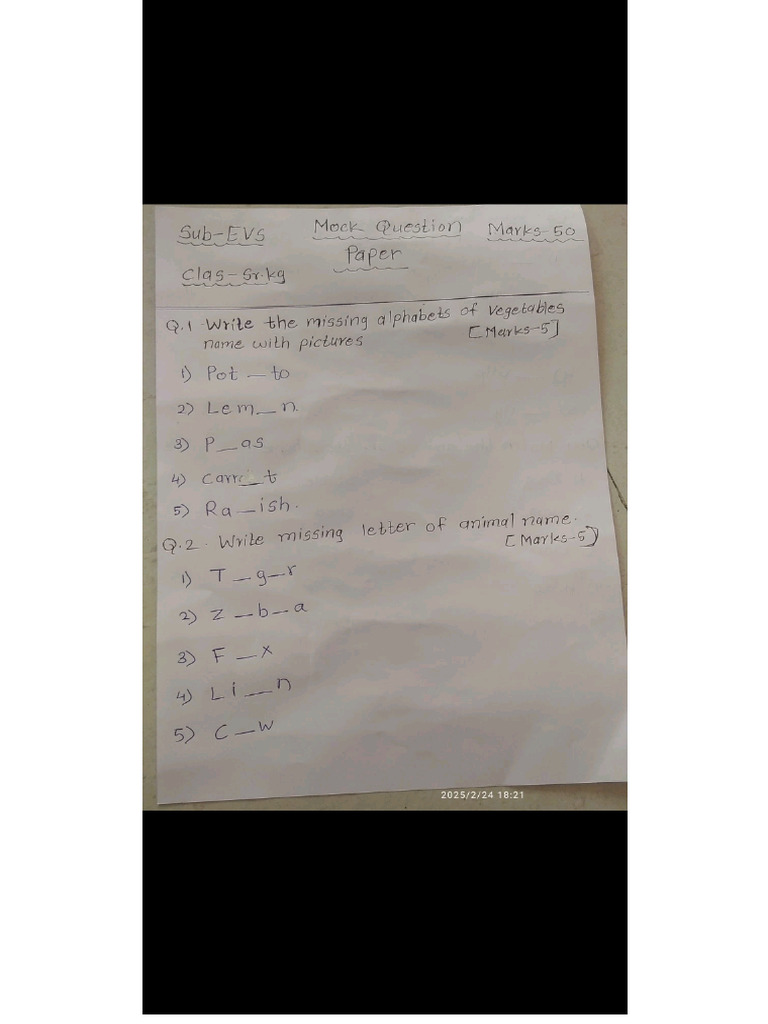 Sub-EVS Mock Question Marks-50
Paper
Clas-Sr.kg
Q.1 Write the missing alphabets of vegetables
name with pictures [Marks-5]
1) Pot _ to
2) Lem _ n.
3) P _ as
4) Carr _ t
5) Ra _ ish.
Q.2. Write missing letter of animal name.
[Marks-5)
1) T _ g _ r
2) Z _ b _ a
3) F _ x
4) Li _ n
5) C _ w
2025/2/24 18:21